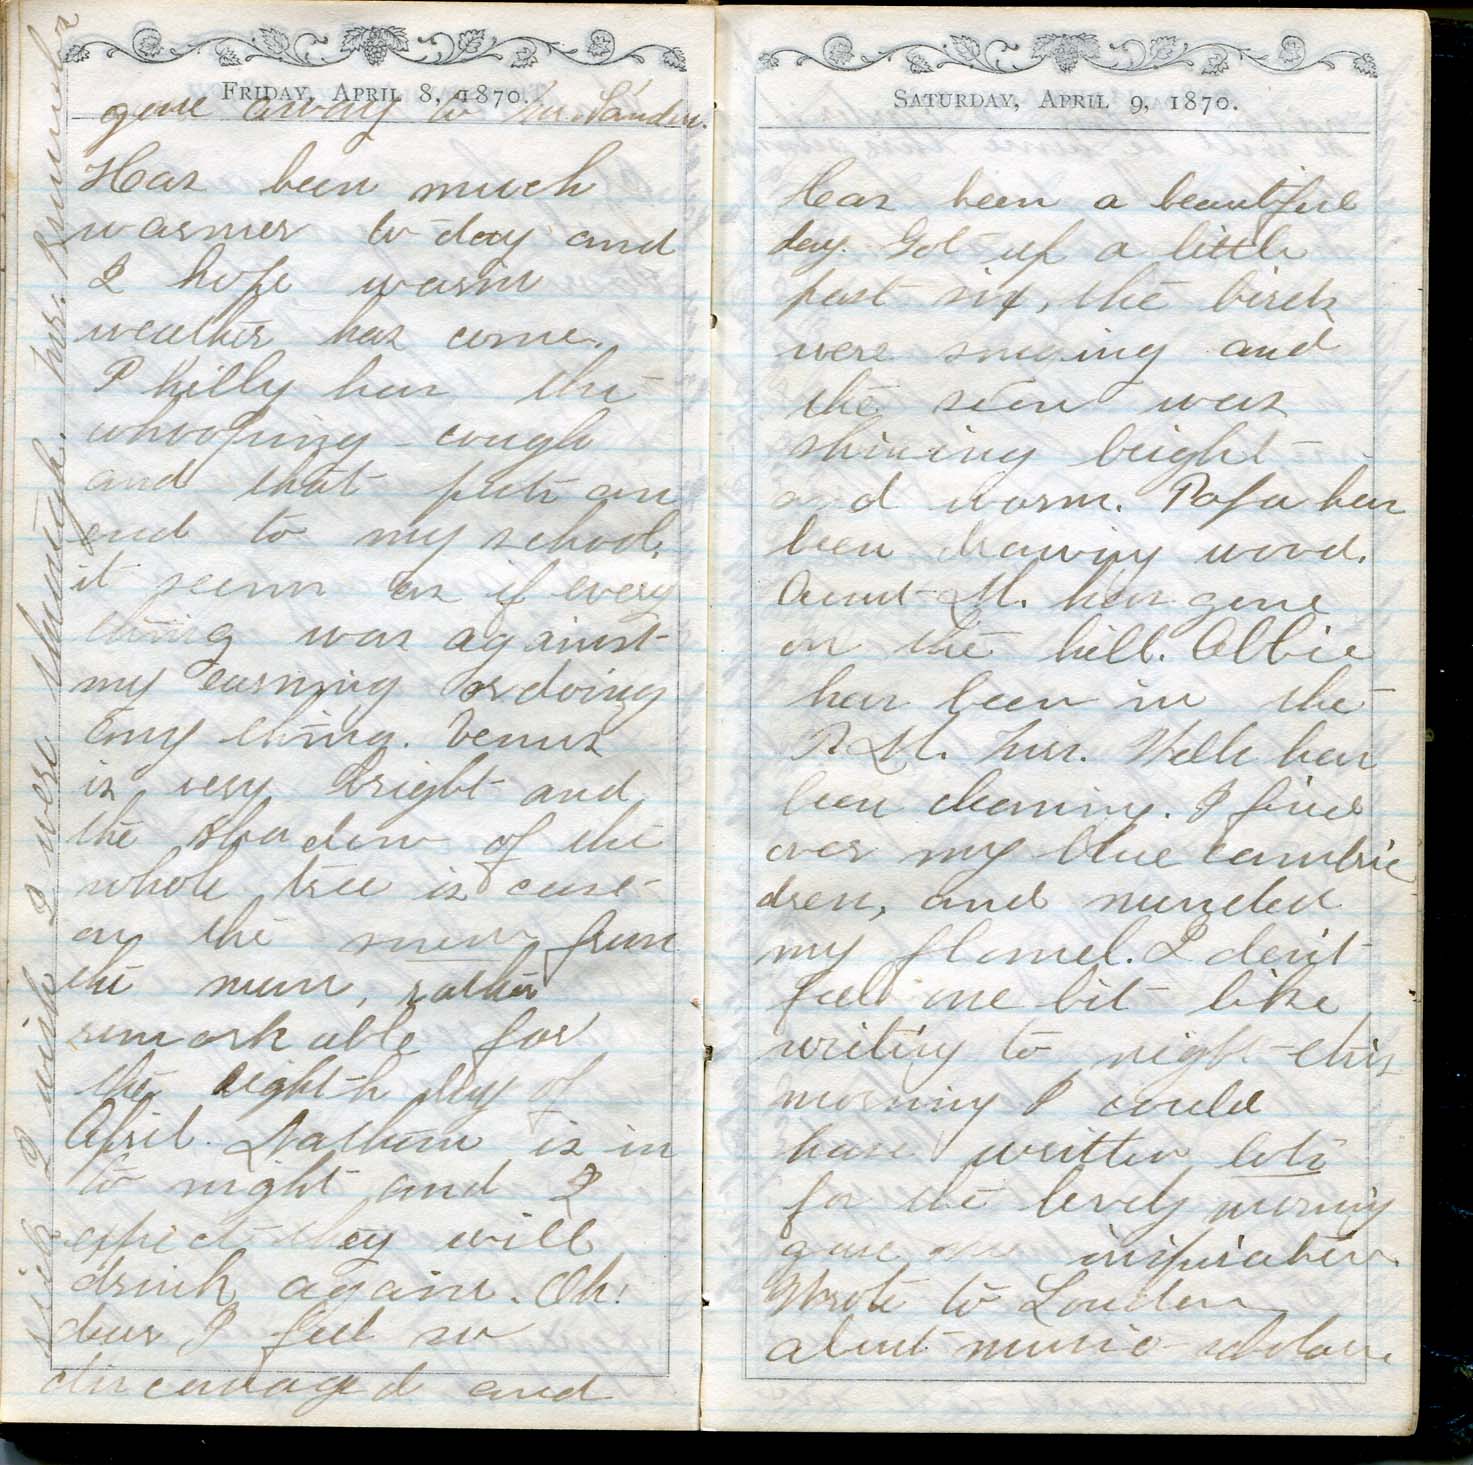 Friday, April 8, 1870.
Has been much
warmer to day and
I hope warm
weather has come.
P Killy has the
whooping-cough
and that puts an
end to my school,
it seems as if every
thing was against
my earning or doing
any thing. Venus
is very bright and
the shadow of the
whole tree is cast
on the snow from
the moon, rather
remarkable for
the eighth day of
April. Nathum is in
to night and I
expect they will
drink again. Oh!
dear I feel so
discouraged and
sick I wish I were through. Mrs. Brumeler
gone away to Mr. Landers.
Saturday, April 9, 1870.
Has been a beautiful
day. Got up a little
past six, the birds
were singing and
the sun was
shining bright
and warm. Papa has
been drawing wood.
Aunt M. has gone
on the hill. Abbie
has been in the
P.M. Mrs. Wells has
been cleaning. I fixed
over my blue cambric
dress, and mended
my flannel. I don't
feel one bit like
writing to night this
morning I could
have written lots
for the lovely morning
gave me inspiration.
Wrote to London
about music scholars.